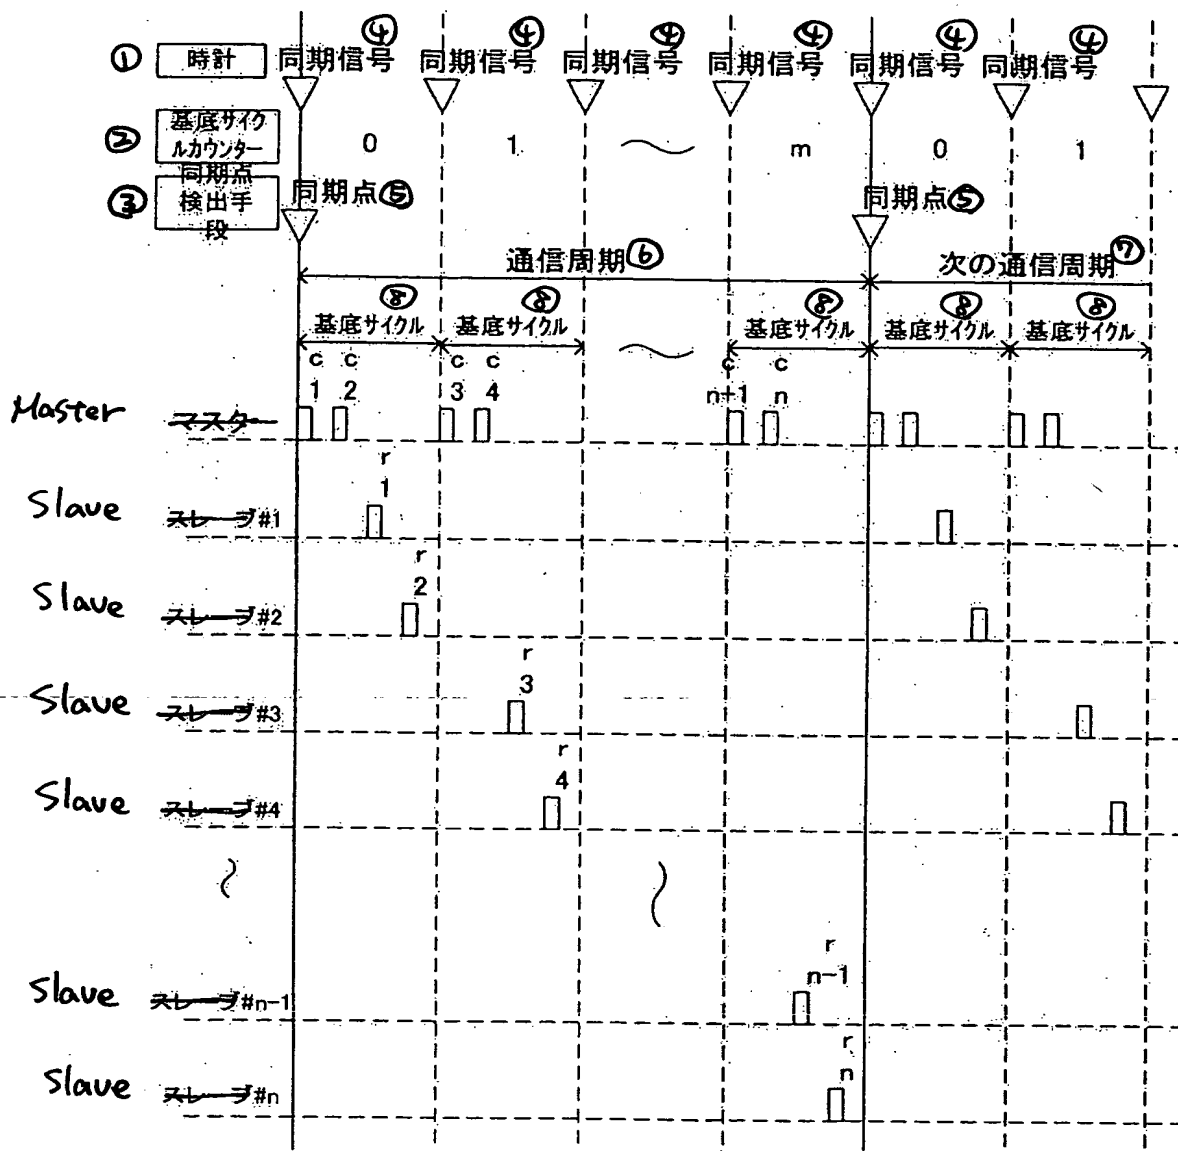 ④ ④ ④ ④ ④ ④
① 時計 同期信号 同期信号 同期信号 同期信号 同期信号 同期信号
② 基底サイク
ルカウンター 0 1 m 0 1
③ 同期点
検出手
段
同期点⑤ 同期点⑤
通信周期⑥ 次の通信周期⑦
⑧ ⑧ ⑧ ⑧ ⑧
基底サイクル 基底サイクル 基底サイクル 基底サイクル 基底サイクル
c c c c c c
1 2 3 4 n+1 n
Master マスター
r
1
Slave スレーブ#1
r
2
Slave スレーブ#2
r
3
Slave スレーブ#3
r
4
Slave スレーブ#4
r
n-1
Slave スレーブ#n-1
r
n
Slave スレーブ#n